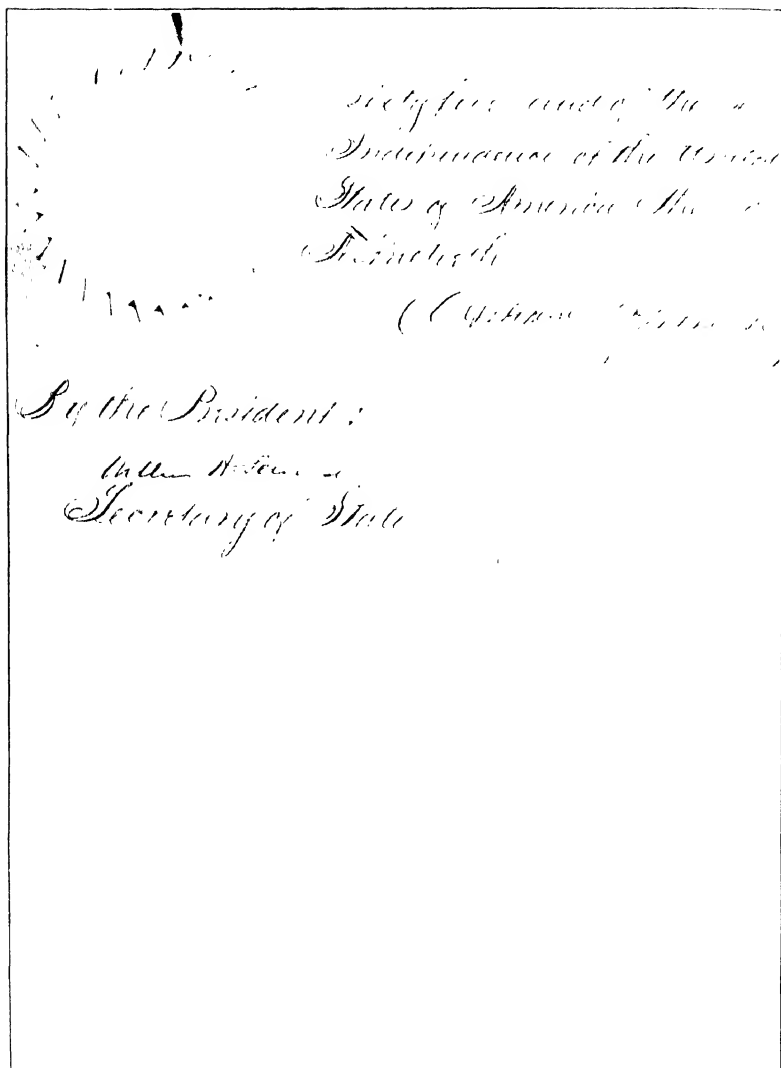 sixty five and of the
Independence of the United
States of America the
Ninetieth
Andrew Johnson
By the President:
William
Secretary of State